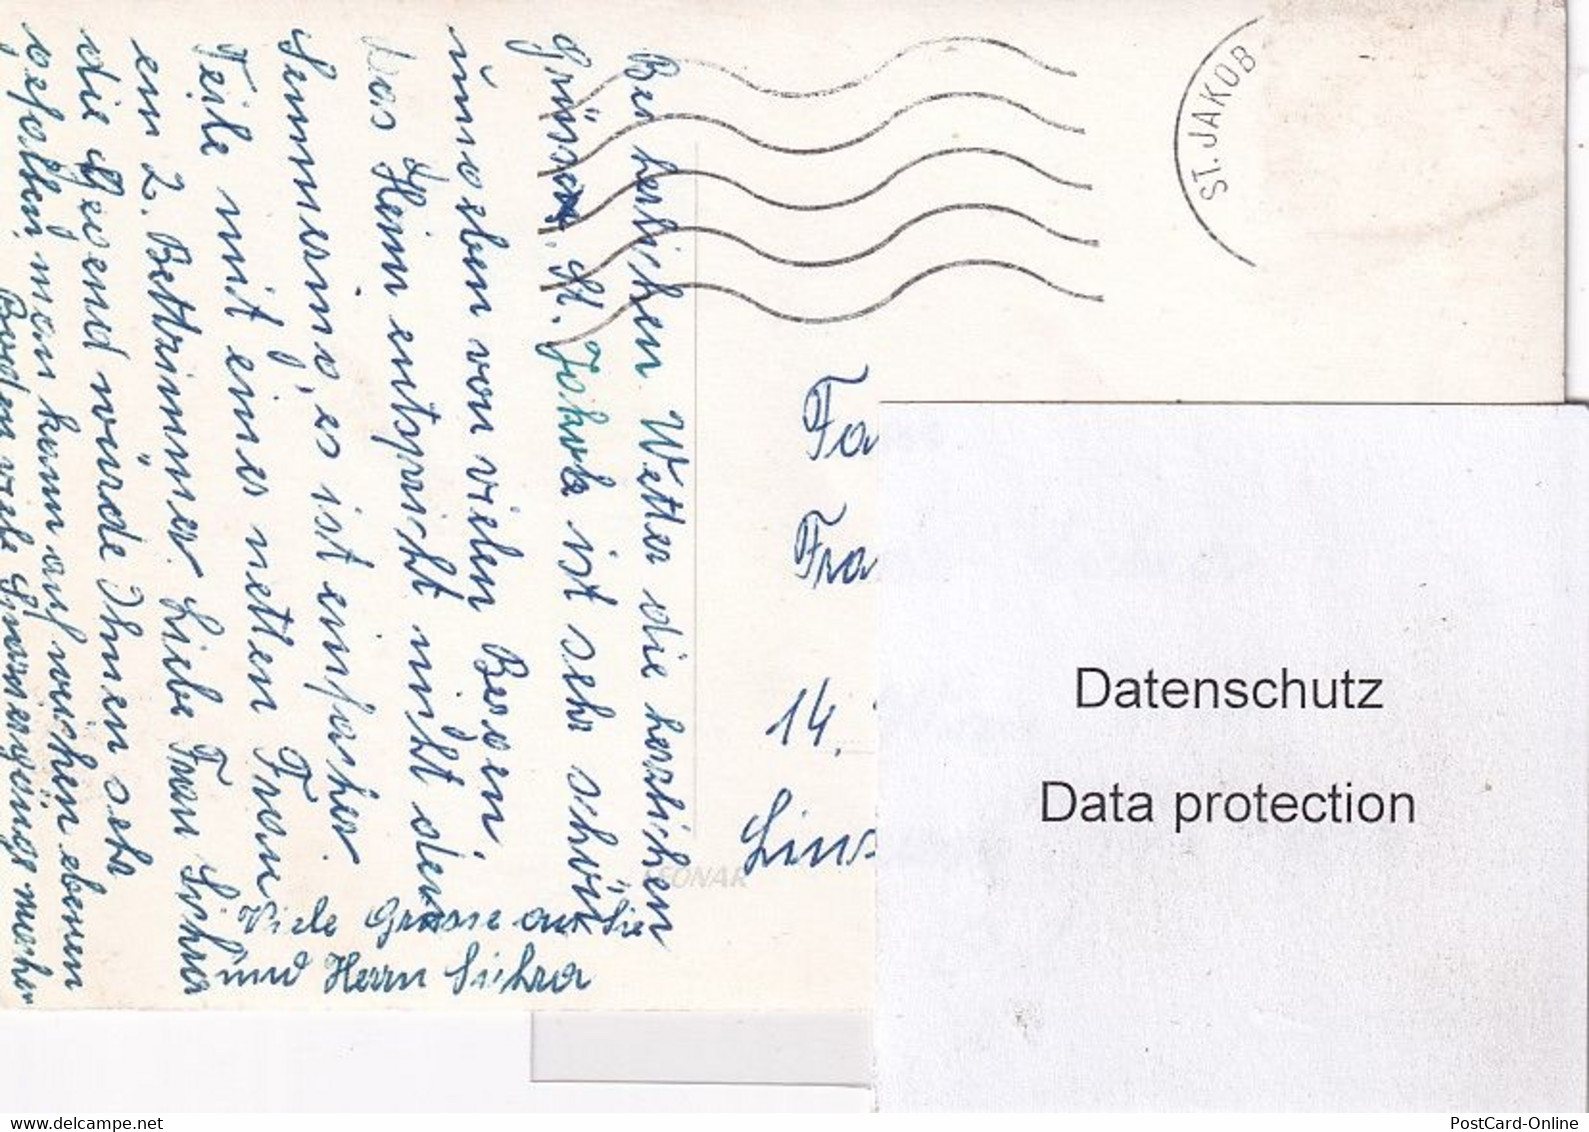 Bei herlichen Wetter die herzlichen
Grüsse. St. Jakob ist sehr schön
umgeben von vielen Bergen.
Das Heim entspricht nicht dem
Semmering, es ist einfacher.
Teile mit einer netten Frau
ein 2. Bettzimmer. Liebe Frau
die Gegend würde Ihnen sehr
gefallen, man kann auf weichen ebenen
Boden viele Spaziergänge machen
Viele Grüsse an Sie
und Herrn
ST. JAKOB
Fa
Fra
14.
LEONAR
Datenschutz
Data protection
delcampe.net
PostCard-Online